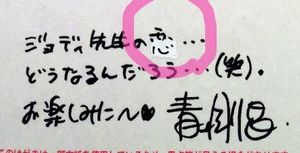 ジョディ先生の恋…
どうなるんだろう…(笑)。
お楽しみに〜♥ 青山剛昌